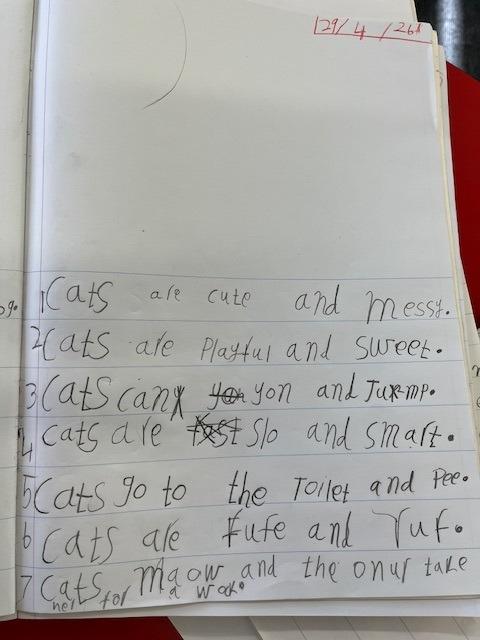 29/4/26
1 Cats are cute and messy.
2 Cats are Playful and sweet.
3 Cats can yon and Jump.
4 Cats are slo and smart.
5 Cats go to the Toilet and Pee.
6 Cats are fufe and ruf.
7 Cats maow and the onur take
her for a wok.